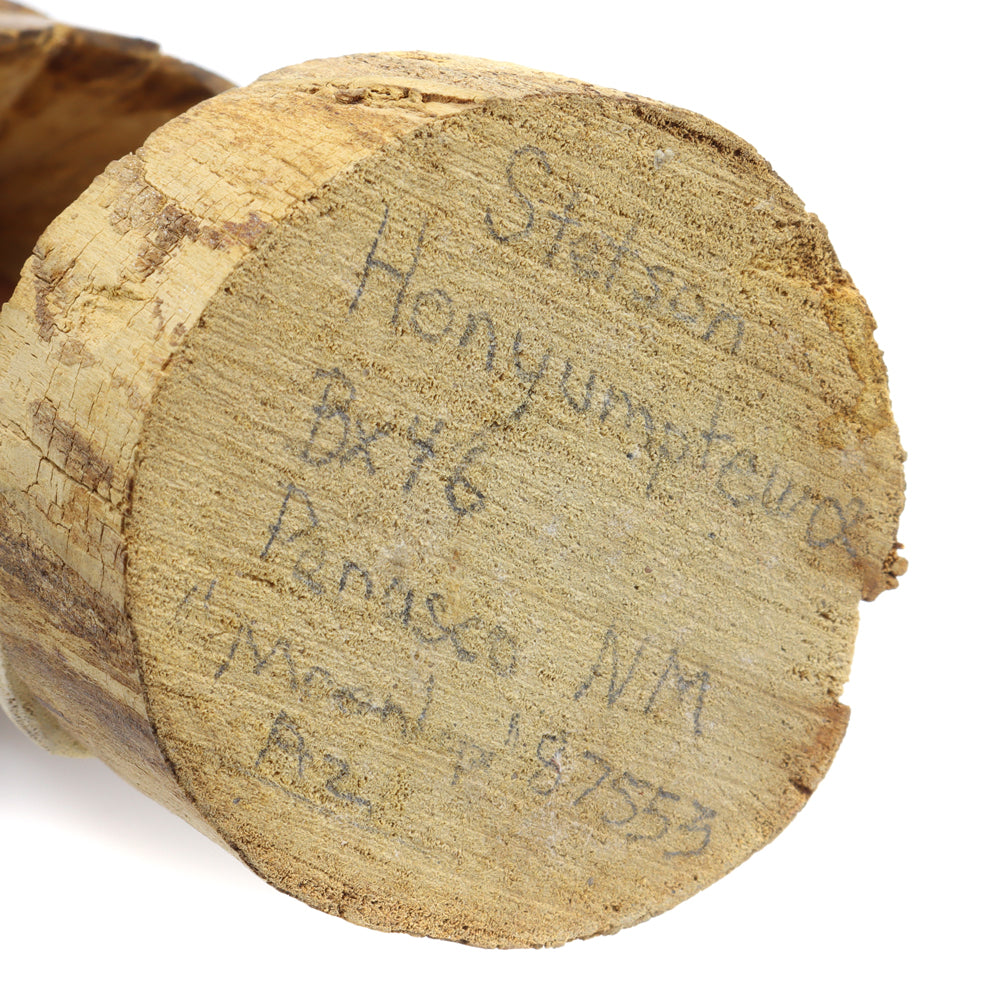 Stetson
Honyumptewa
Bx 46
Penasco NM
87553
Az